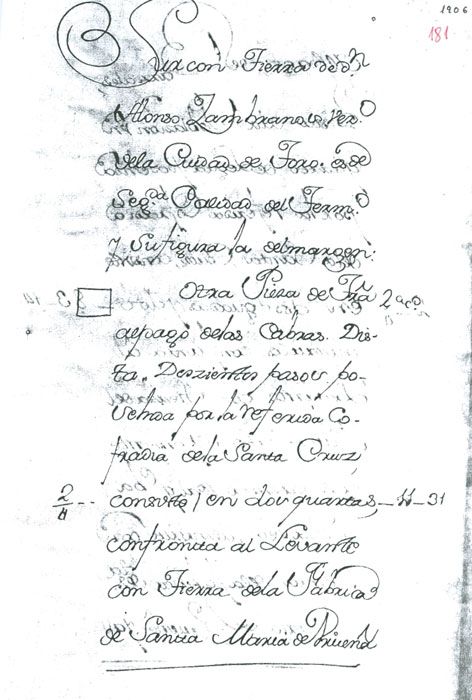 1906
181
Sur con Tierra de Dn
Alonso Zambrano Vez.o
de la Ciudad de Toro. es de
Seg.da Calidad del Term.o
y su figura la del margen:
Otra Pieza de Trra
al pago de las Cabras. Dis-
ta. Doszientos pasos po-
sehida por la referida Co-
fradia de la Santa Cruz,
2/4 -- consiste / en dos quartas, 31
confronta al Levante
con Tierra de la Fabrica
de Santa Maria de